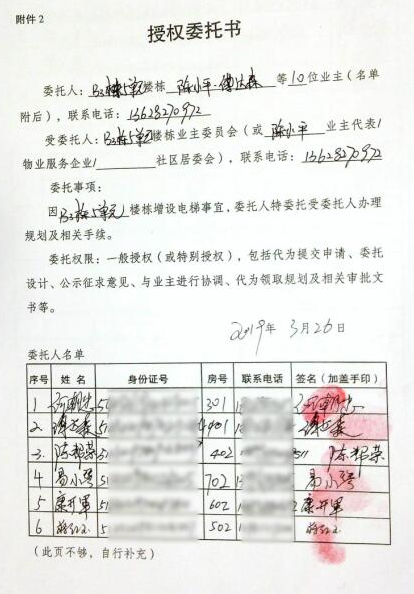 附件 2
授权委托书
委托人：B2栋5单元楼栋 陈小平、 等10位业主（名单
附后），联系电话：13628270972
受委托人：B2栋5单元楼栋业主委员会（或 陈小平 业主代表/
物业服务企业/ 社区居委会），联系电话：13628270972
委托事项：
因B2栋5单元/楼栋增设电梯事宜，委托人特委托受委托人办理
规划及相关手续。
委托权限：一般授权（或特别授权），包括代为提交申请、委托
设计、公示征求意见、与业主进行协调、代为领取规划及相关审批文
书等。
2019年 3月26日
委托人名单
序号 姓 名 身份证号 房号 联系电话 签名（加盖手印）
1 301
2. 401
3. 陈邦荣 402 陈邦荣
4 易小琴 702 易小琴
5 康开军 602 康开军
6 502
（此页不够，自行补充）